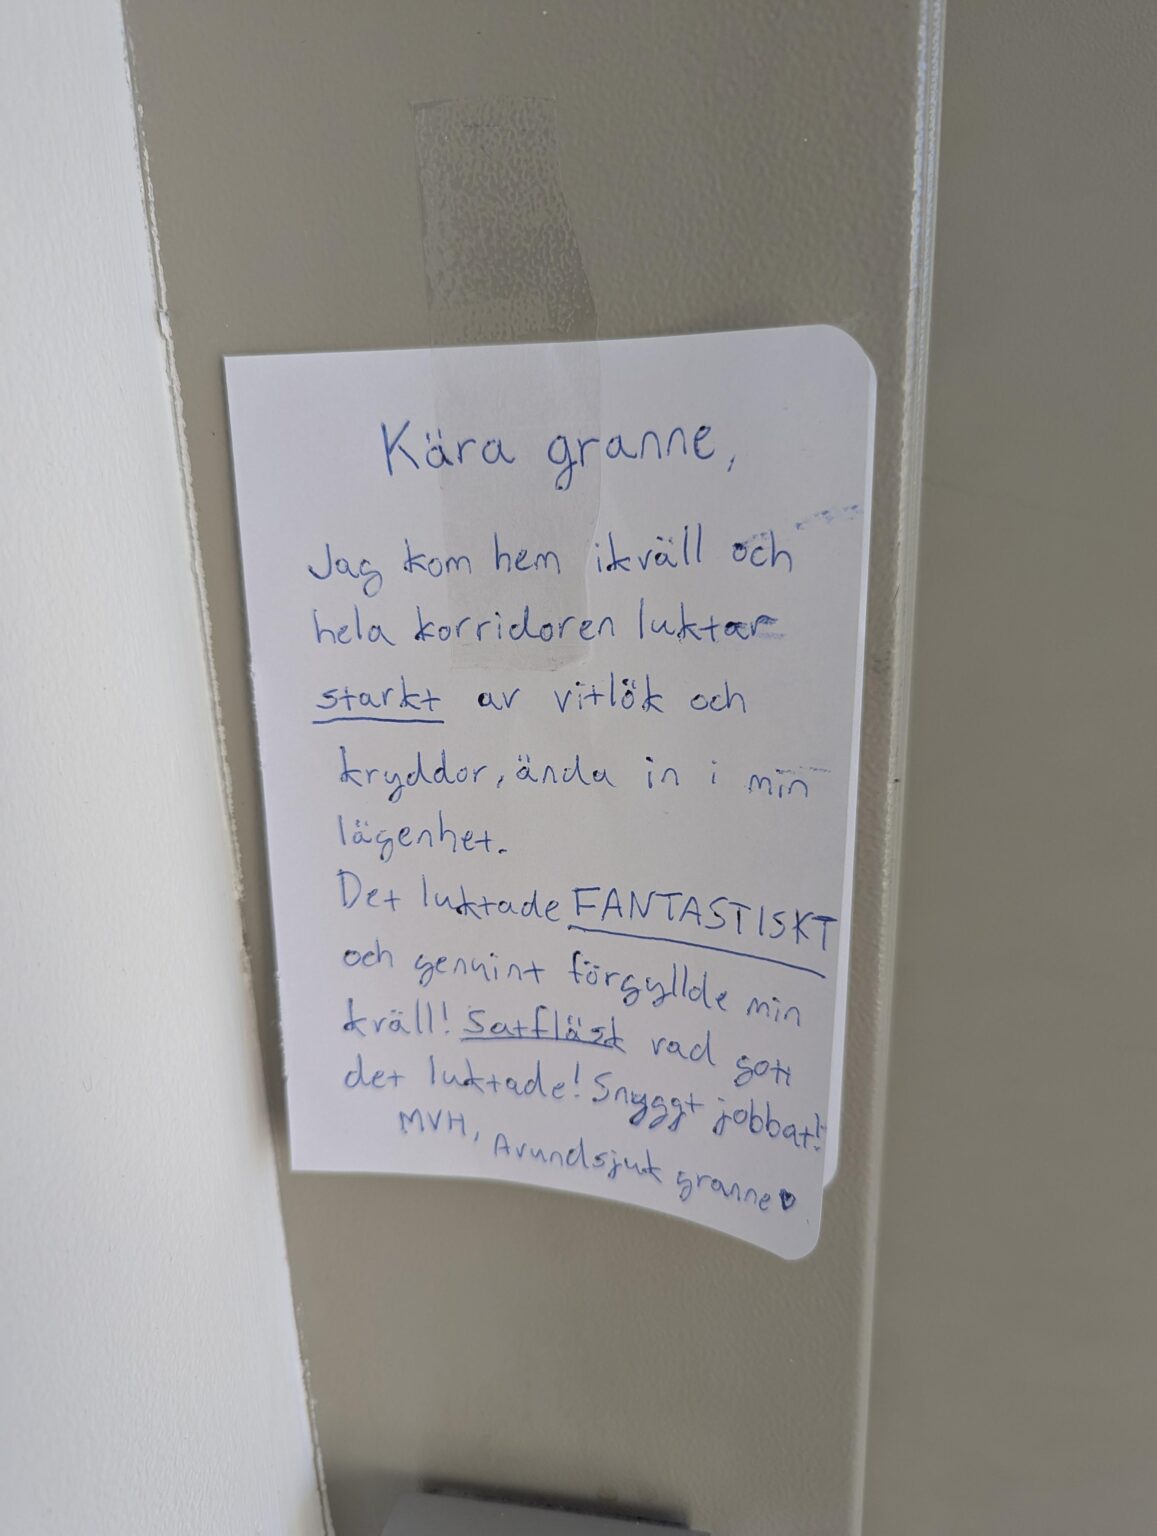 Kära granne,
Jag kom hem ikväll och
hela korridoren luktar
starkt av vitlök och
kryddor, ända in i min
lägenhet.
Det luktade FANTASTISKT
och genuint förgyllde min
kväll! Satfläsk vad gott
det luktade! Snyggt jobbat!
MVH, Avundsjuk granne♥